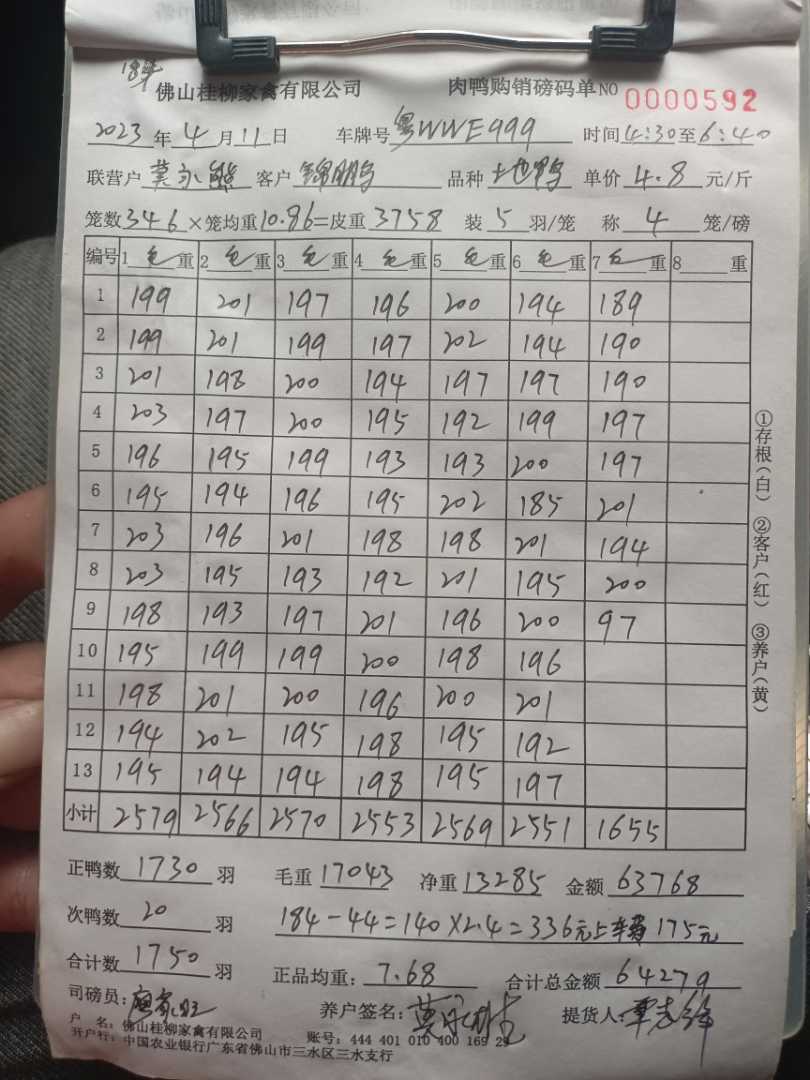 佛山桂柳家禽有限公司 肉鸭购销磅码单 NO 0000592
2023年4月11日 车牌号粤WWE999 时间4:30至6:40
联营户莫永熊 客户锦鹏 品种土地鸭 单价4.8元/斤
笼数346×笼均重10.86=皮重3758 装5羽/笼 称4笼/磅
编号 1毛重 2毛重 3毛重 4毛重 5毛重 6毛重 7毛重 8 重
1 199 201 197 196 200 194 189
2 199 201 199 197 202 194 190
3 201 198 200 194 197 197 190
4 203 197 200 195 192 199 197
5 196 195 199 193 193 200 197
6 195 194 196 195 202 185 201
7 203 196 201 198 198 201 194
8 203 195 193 192 201 195 200
9 198 193 197 201 196 200 97
10 195 199 199 200 198 196
11 198 201 200 196 200 201
12 194 202 195 198 195 192
13 195 194 194 198 195 197
小计 2579 2566 2570 2553 2569 2551 1655
①存根(白) ②客户(红) ③养户(黄)
正鸭数1730羽 毛重17043 净重13285 金额63768
次鸭数20羽 184-44=140×2.4=336元上车费175元
合计数1750羽 正品均重:7.68 合计总金额64279
司磅员: 养户签名: 提货人:
户 名:佛山桂柳家禽有限公司 账号:444 401 010 400 169 29
开户行:中国农业银行广东省佛山市三水区三水支行